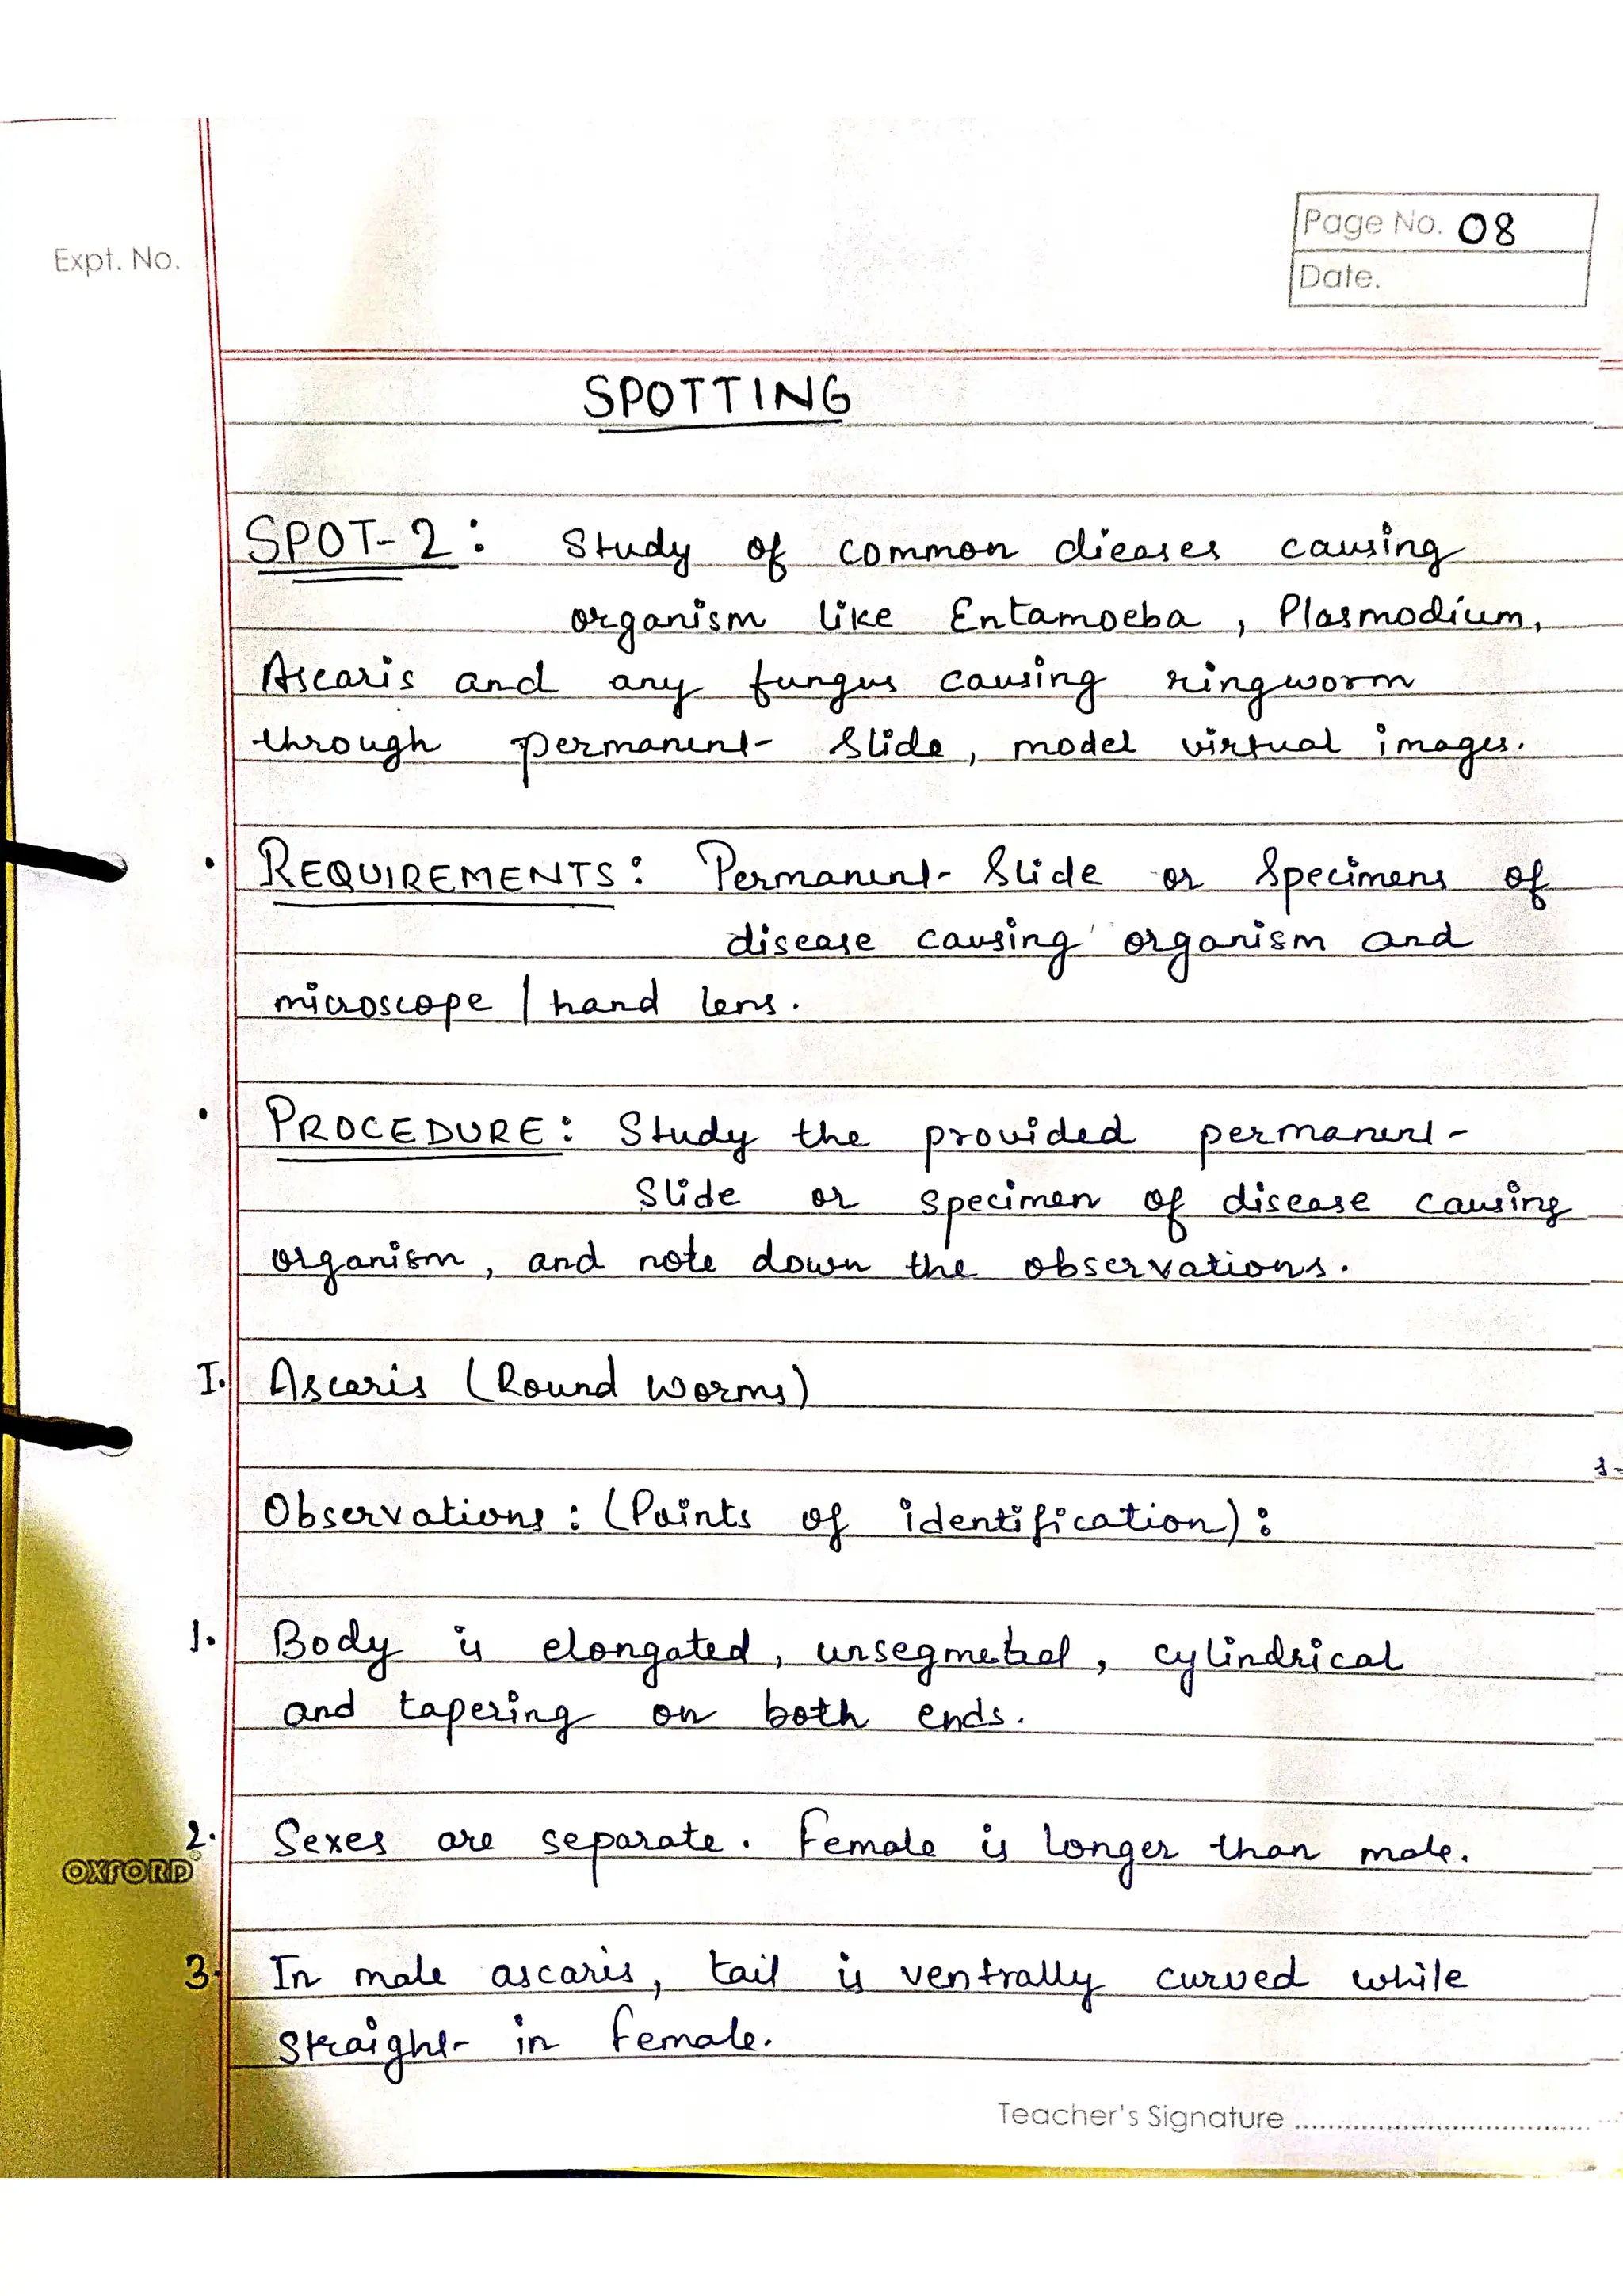 Page No. 08
Expt. No.
Date.
SPOTTING
SPOT-2: Study of common dieases causing
organism like Entamoeba, Plasmodium,
Ascaris and any fungus causing ringworm
through permanent slide, model virtual images.
• REQUIREMENTS: Permanent Slide or Specimens of
disease causing organism and
microscope / hand lens.
• PROCEDURE: Study the provided permanent
slide or specimen of disease causing
organism, and note down the observations.
I. Ascaris (Round worms)
Observations: (Points of identification):
1. Body is elongated, unsegmeted, cylindrical
and tapering on both ends.
2. Sexes are separate. Female is longer than male.
OXFORD
3. In male ascaris, tail is ventrally curved while
straight in female.
Teacher's Signature